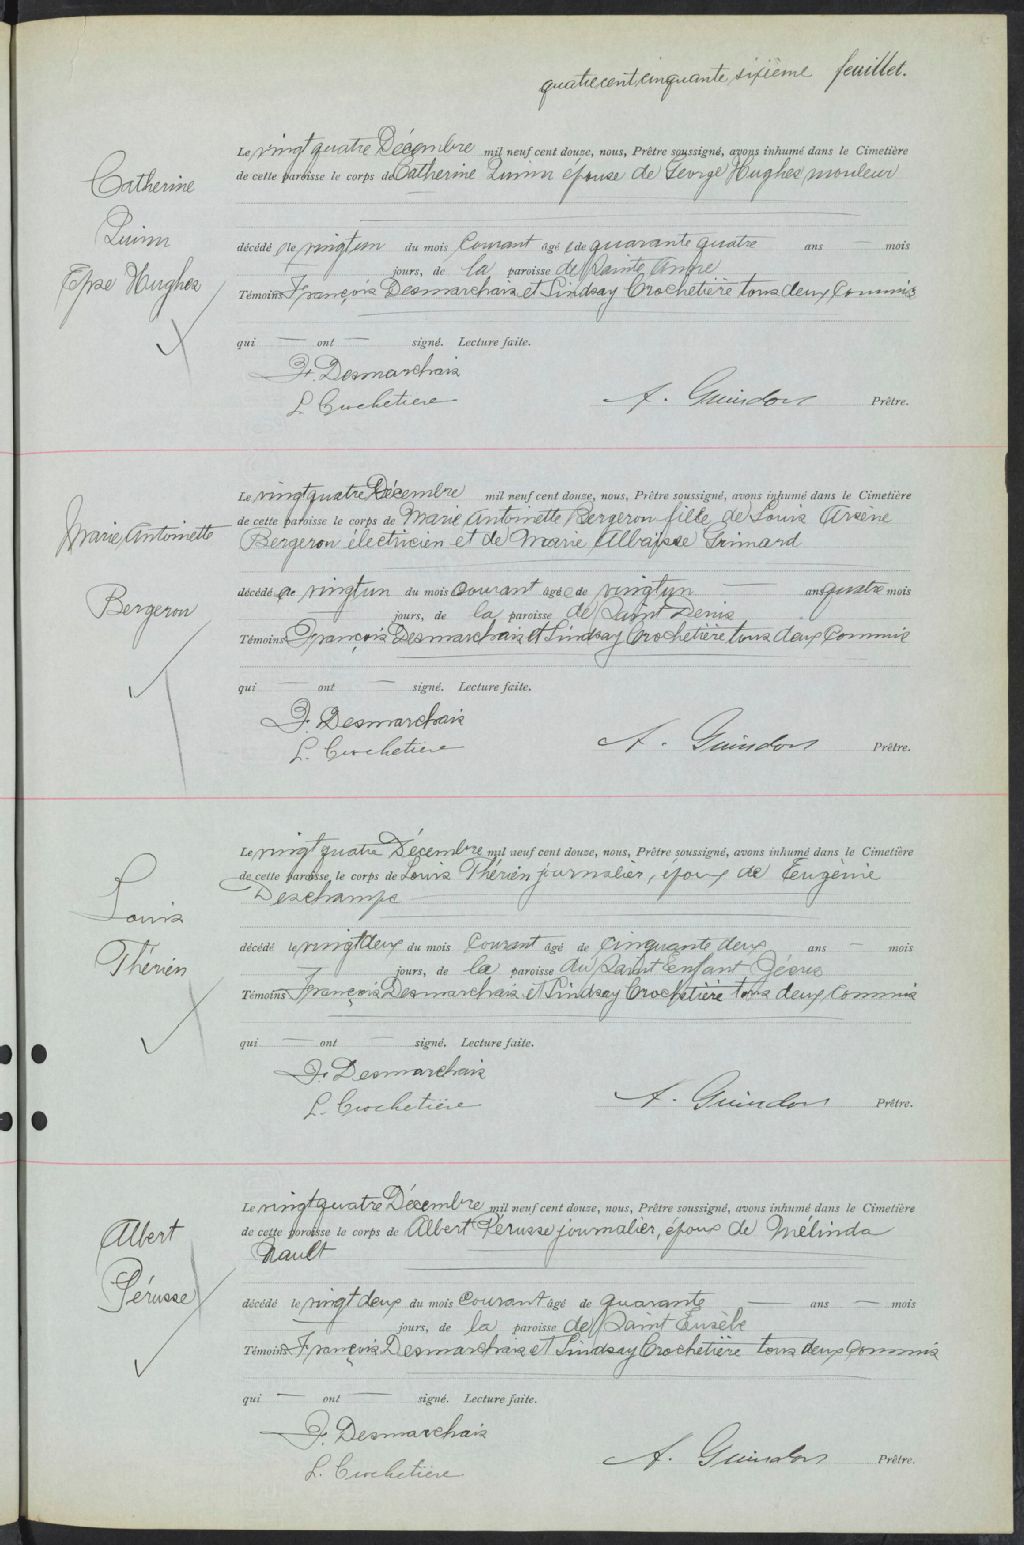 quatre cent cinquante sixième feuillet.
Catherine
Quinn
Epse Hughes
Le vingt quatre Décembre mil neuf cent douze, nous, Prêtre soussigné, avons inhumé dans le Cimetière
de cette paroisse le corps de Catherine Quinn épouse de George Hughes, mouleur
décédée le vingt un du mois courant âgée de quarante quatre ans — mois
jours, de la paroisse de Sainte Anne
Témoins François Desmarchais et Lindsay Crochetière tous deux Commis
qui — ont — signé. Lecture faite.
F. Desmarchais
L. Crochetiere A. Guindon Prêtre.
Marie Antoinette
Bergeron
Le vingt quatre Décembre mil neuf cent douze, nous, Prêtre soussigné, avons inhumé dans le Cimetière
de cette paroisse le corps de Marie Antoinette Bergeron fille de Louis Arsène
Bergeron électricien et de Marie Grimard
décédée le vingt un du mois courant âgée de vingt un — ans quatre mois
jours, de la paroisse de Saint Denis
Témoins François Desmarchais et Lindsay Crochetière tous deux Commis
qui — ont — signé. Lecture faite.
F. Desmarchais
L. Crochetiere A. Guindon Prêtre.
Louis
Thérien
Le vingt quatre Décembre mil neuf cent douze, nous, Prêtre soussigné, avons inhumé dans le Cimetière
de cette paroisse le corps de Louis Thérien journalier, époux de Eugénie
Deschamps
décédé le vingt deux du mois courant âgé de cinquante deux ans — mois
jours, de la paroisse du Saint Enfant Jésus
Témoins François Desmarchais et Lindsay Crochetière tous deux Commis
qui — ont — signé. Lecture faite.
F. Desmarchais
L. Crochetière A. Guindon Prêtre.
Albert
Pérusse
Le vingt quatre Décembre mil neuf cent douze, nous, Prêtre soussigné, avons inhumé dans le Cimetière
de cette paroisse le corps de Albert Pérusse journalier, époux de Mélinda
Nault
décédé le vingt deux du mois courant âgé de quarante — ans — mois
jours, de la paroisse de Saint Eusèbe
Témoins François Desmarchais et Lindsay Crochetière tous deux Commis
qui — ont — signé. Lecture faite.
F. Desmarchais
L. Crochetiere A. Guindon Prêtre.